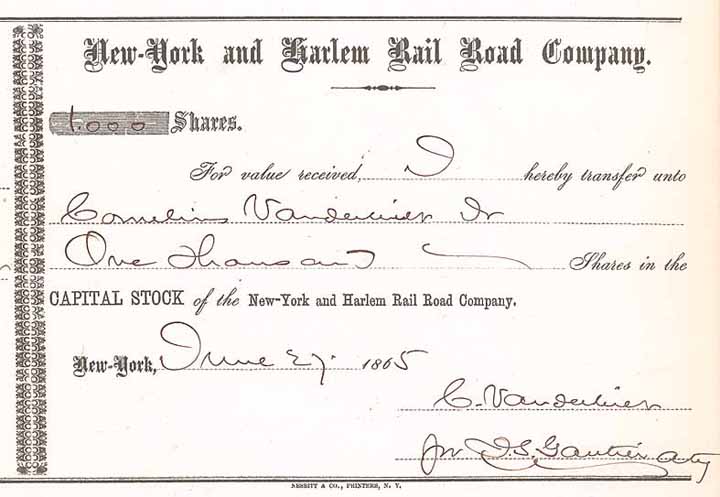 New-York and Harlem Rail Road Company.
1.000 Shares.
For value received, I hereby transfer unto
Cornelius Vanderbilt Jr
One Thousand Shares in the
CAPITAL STOCK of the New-York and Harlem Rail Road Company.
New-York, June 27. 1865
C. Vanderbilt
pr D.S. Gautier Aty
NESBITT & CO., PRINTERS, N. Y.